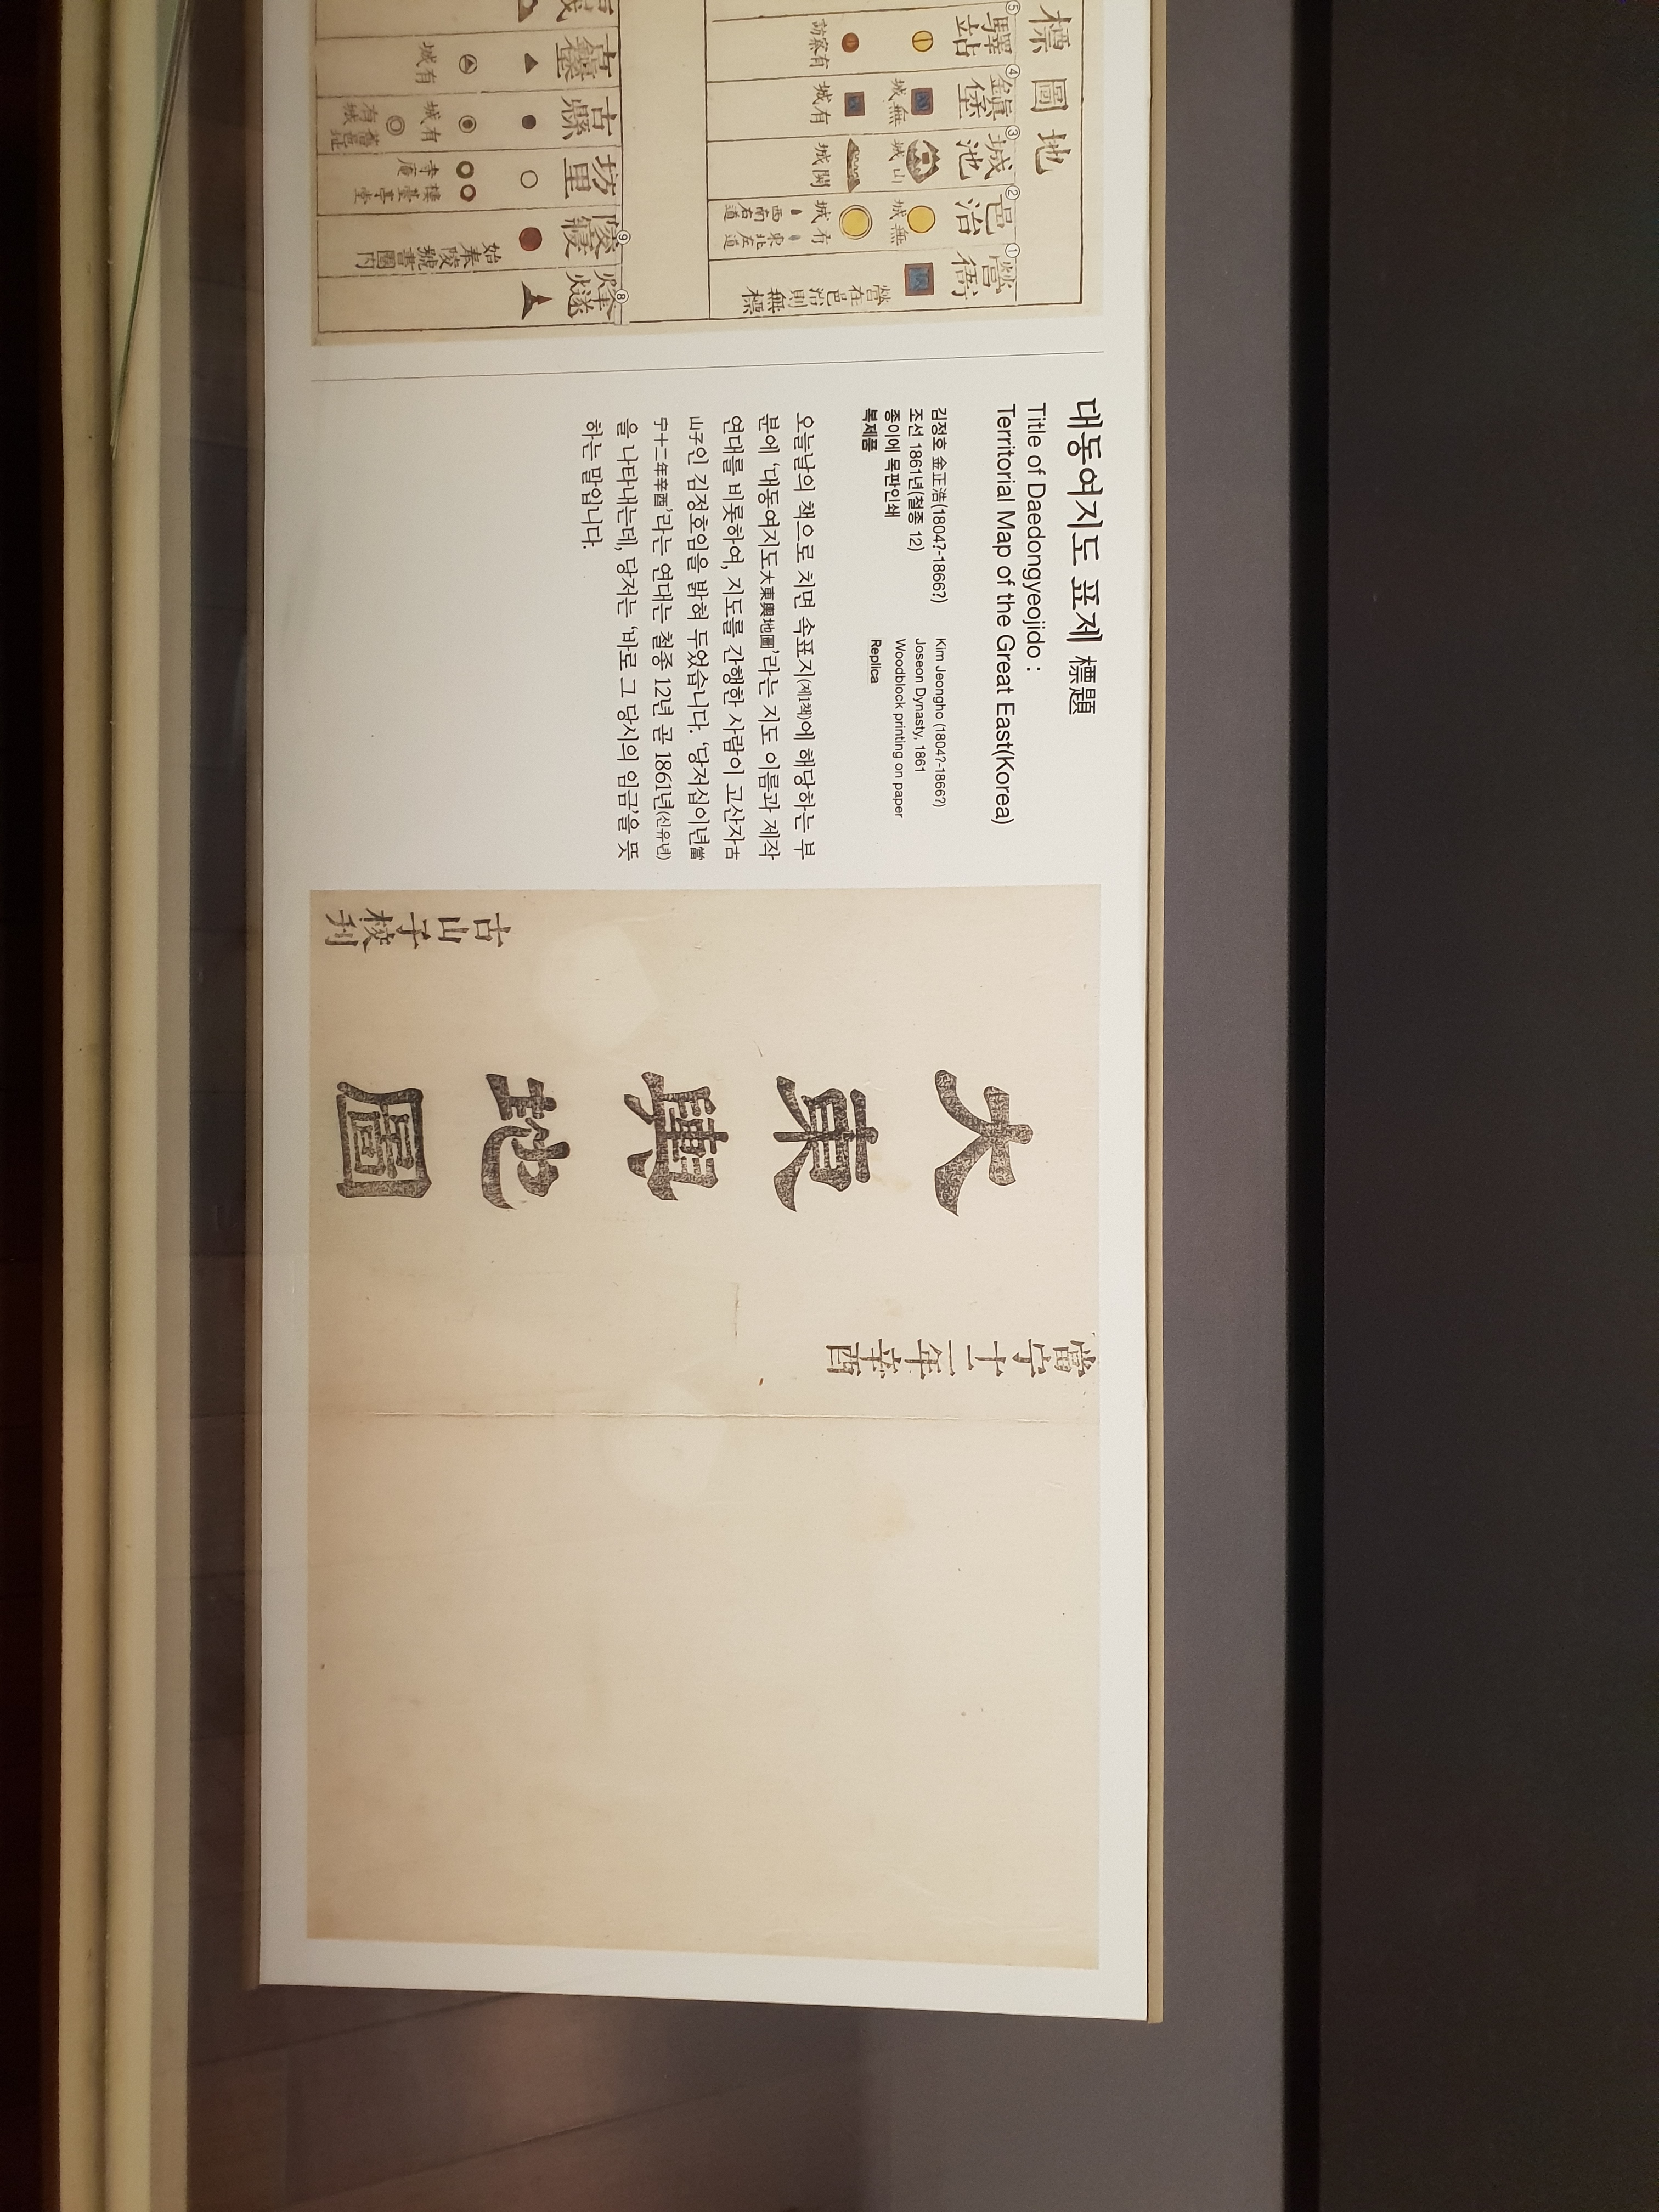 地圖標
①營衙
營在邑治則無標
②邑治
無城
有城
③城池
山城
關城
④鎭堡
無城
有城
⑤驛站
⑧烽燧
⑨陵寢
坊里
古縣
有城
有城
대동여지도 표제 標題
Title of Daedongyeojido :
Territorial Map of the Great East(Korea)
김정호 金正浩(1804?-1866?)
조선 1861년(철종 12)
종이에 목판인쇄
복제품
Kim Jeongho (1804?-1866?)
Joseon Dynasty, 1861
Woodblock printing on paper
Replica
오늘날의 책으로 치면 속표지(제1책)에 해당하는 부
분에 '대동여지도大東輿地圖'라는 지도 이름과 제작
연대를 비롯하여, 지도를 간행한 사람이 고산자古
山子인 김정호임을 밝혀 두었습니다. '당저십이년當
宁十二年辛酉'라는 연대는 철종 12년 곧 1861년(신유년)
을 나타내는데, 당저는 '바로 그 당시의 임금'을 뜻
하는 말입니다.
當宁十二年辛酉
大東輿地圖
古山子校刊